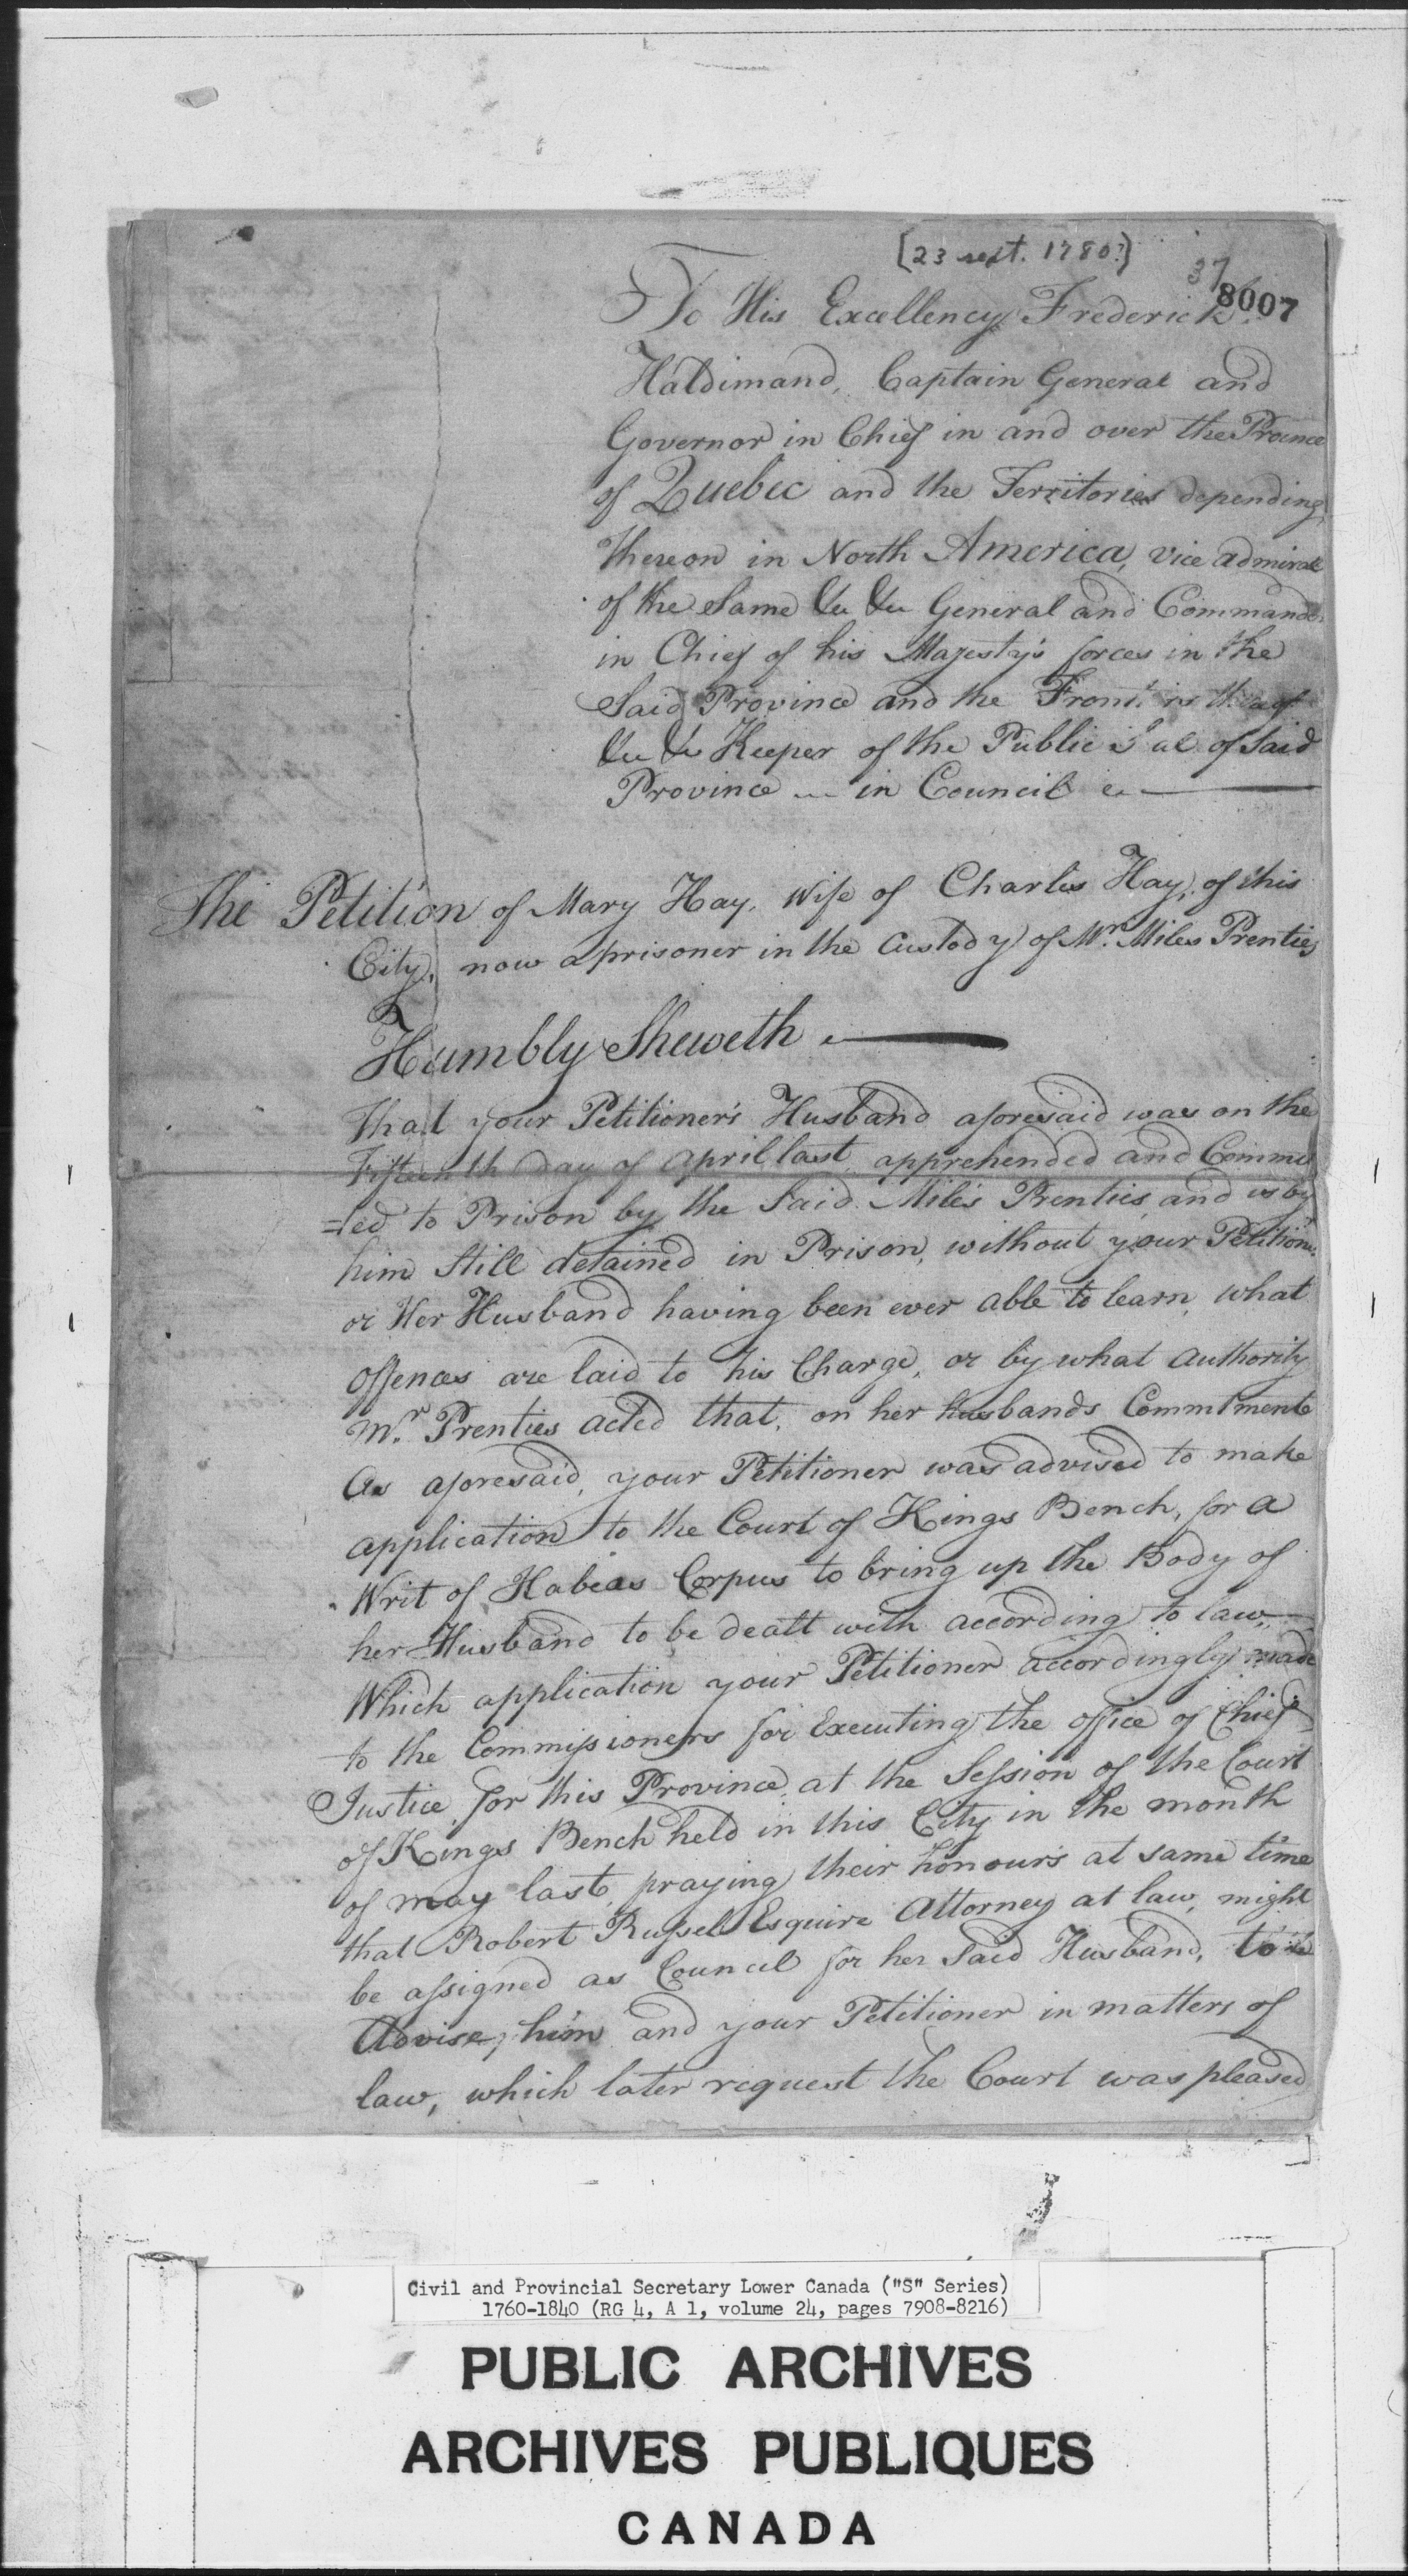 [23 sept. 1780?]
37
8007
To His Excellency Frederick
Haldimand, Captain General and
Governor in Chief in and over the Province
of Quebec and the Territories depending
thereon in North America, vice admiral
of the Same &c &c General and Commander
in Chief of his Majesty's forces in the
Said Province and the thereof
&c &c Keeper of the Public of Said
Province in Council
The Petition of Mary Hay, Wife of Charles Hay, of this
City, now a prisoner in the Custody of Mr. Miles Prenties
Humbly Sheweth
That your Petitioner's Husband aforesaid was on the
Fifteenth Day of April last, apprehended and Commit
=ted to Prison by the Said Miles Prenties, and is by
him Still detained in Prison, without your Petitioner
or Her Husband having been ever able to learn, what
offences are laid to his Charge, or by what authority
Mr. Prenties acted that, on her husbands Commtment
As aforesaid, your Petitioner was advised to make
application to the Court of Kings Bench, for a
Writ of Habeas Corpus to bring up the Body of
her Husband to be dealt with according to law,
Which application your Petitioner accordingly made
to the Commissioners for Executing the office of Chief
Justice for this Province, at the Session of the Court
of Kings Bench held in this City in the month
of may last, praying their honours at same time
that Robert Russel Esquire Attorney at law, might
be assigned as Council for her Said Husband, to
Advise, him and your Petitioner in matters of
law, which later request the Court was pleased
Civil and Provincial Secretary Lower Canada ("S" Series)
1760-1840 (RG 4, A 1, volume 24, pages 7908-8216)
PUBLIC ARCHIVES
ARCHIVES PUBLIQUES
CANADA